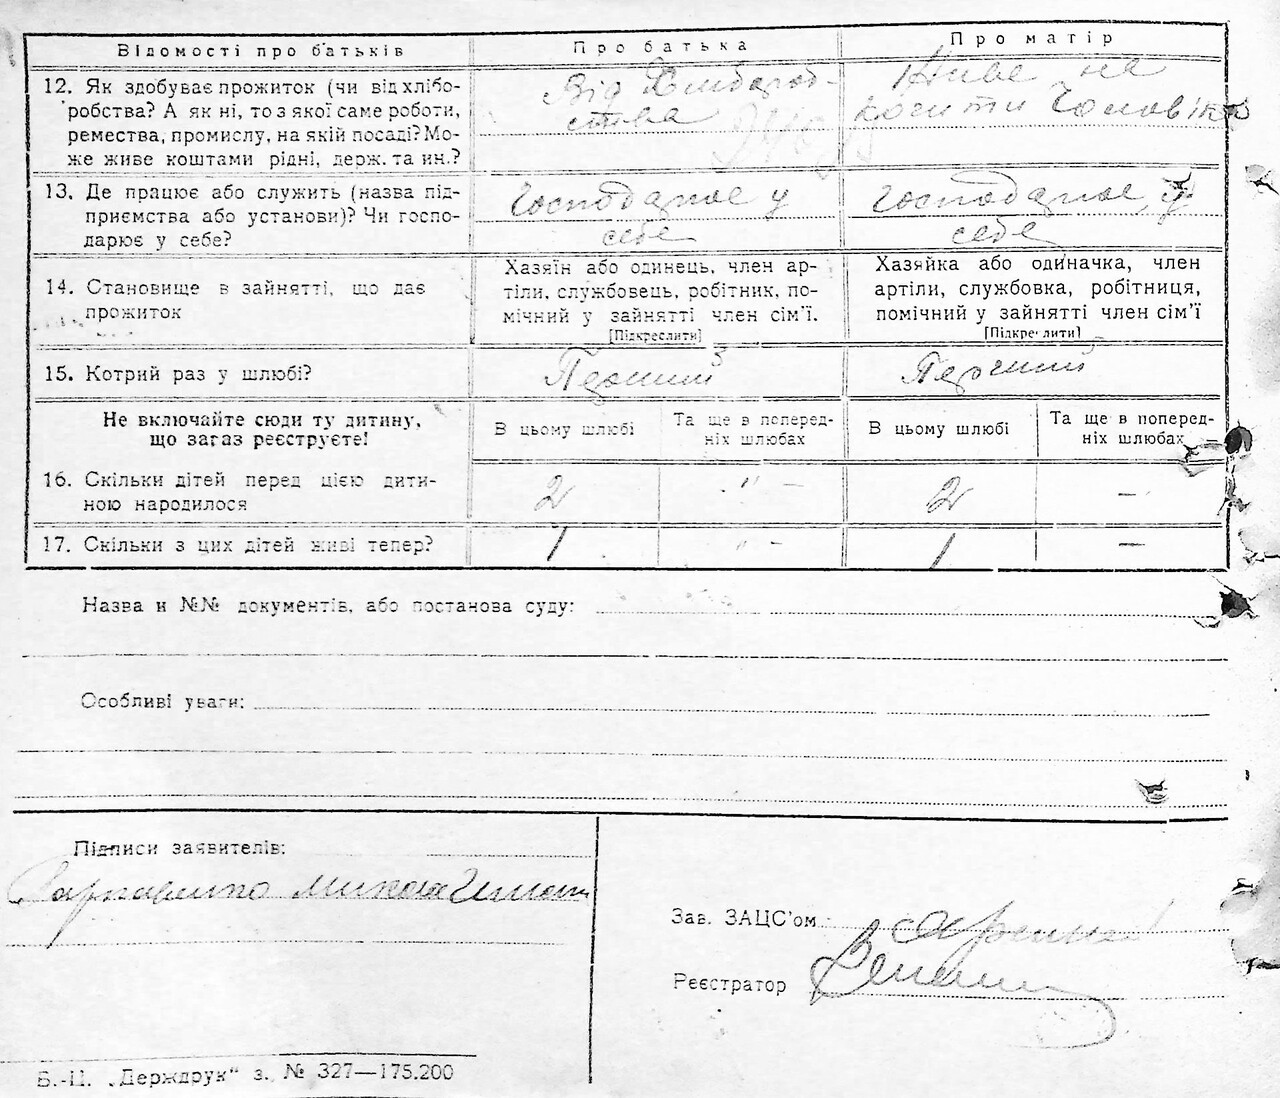 Відомості про батьків
Про батька
Про матір
12. Як здобуває прожиток (чи від хлібо-
робства? А як ні, то з якої саме роботи,
ремества, промислу, на якій посаді? Мо-
же живе коштами рідні, держ. та ин.?
Від Хлібороб-
ства
Живе на
кошти Чоловіка
13. Де працює або служить (назва під-
приємства або установи)? Чи госпо-
дарює у себе?
Господарює у
себе
Господарює у
себе
14. Становище в зайнятті, що дає
прожиток
Хазяїн або одинець, член ар-
тіли, службовець, робітник, по-
мічний у зайнятті член сім'ї.
[Підкреслити]
Хазяйка або одиначка, член
артіли, службовка, робітниця,
помічний у зайнятті член сім'ї
[Підкреслити]
15. Котрий раз у шлюбі?
Перший
Перший
Не включайте сюди ту дитину,
що зараз реєструєте!
В цьому шлюбі
Та ще в поперед-
ніх шлюбах
В цьому шлюбі
Та ще в поперед-
ніх шлюбах
16. Скільки дітей перед цією дити-
ною народилося
2
" -
2
-
17. Скільки з цих дітей живі тепер?
1
" -
1
-
Назва и №№ документів, або постанова суду:
Особливі уваги:
Підписи заявителів:
Зав. ЗАЦС'ом
Реєстратор
Б.-Ц. „Держдрук" з. № 327—175.200